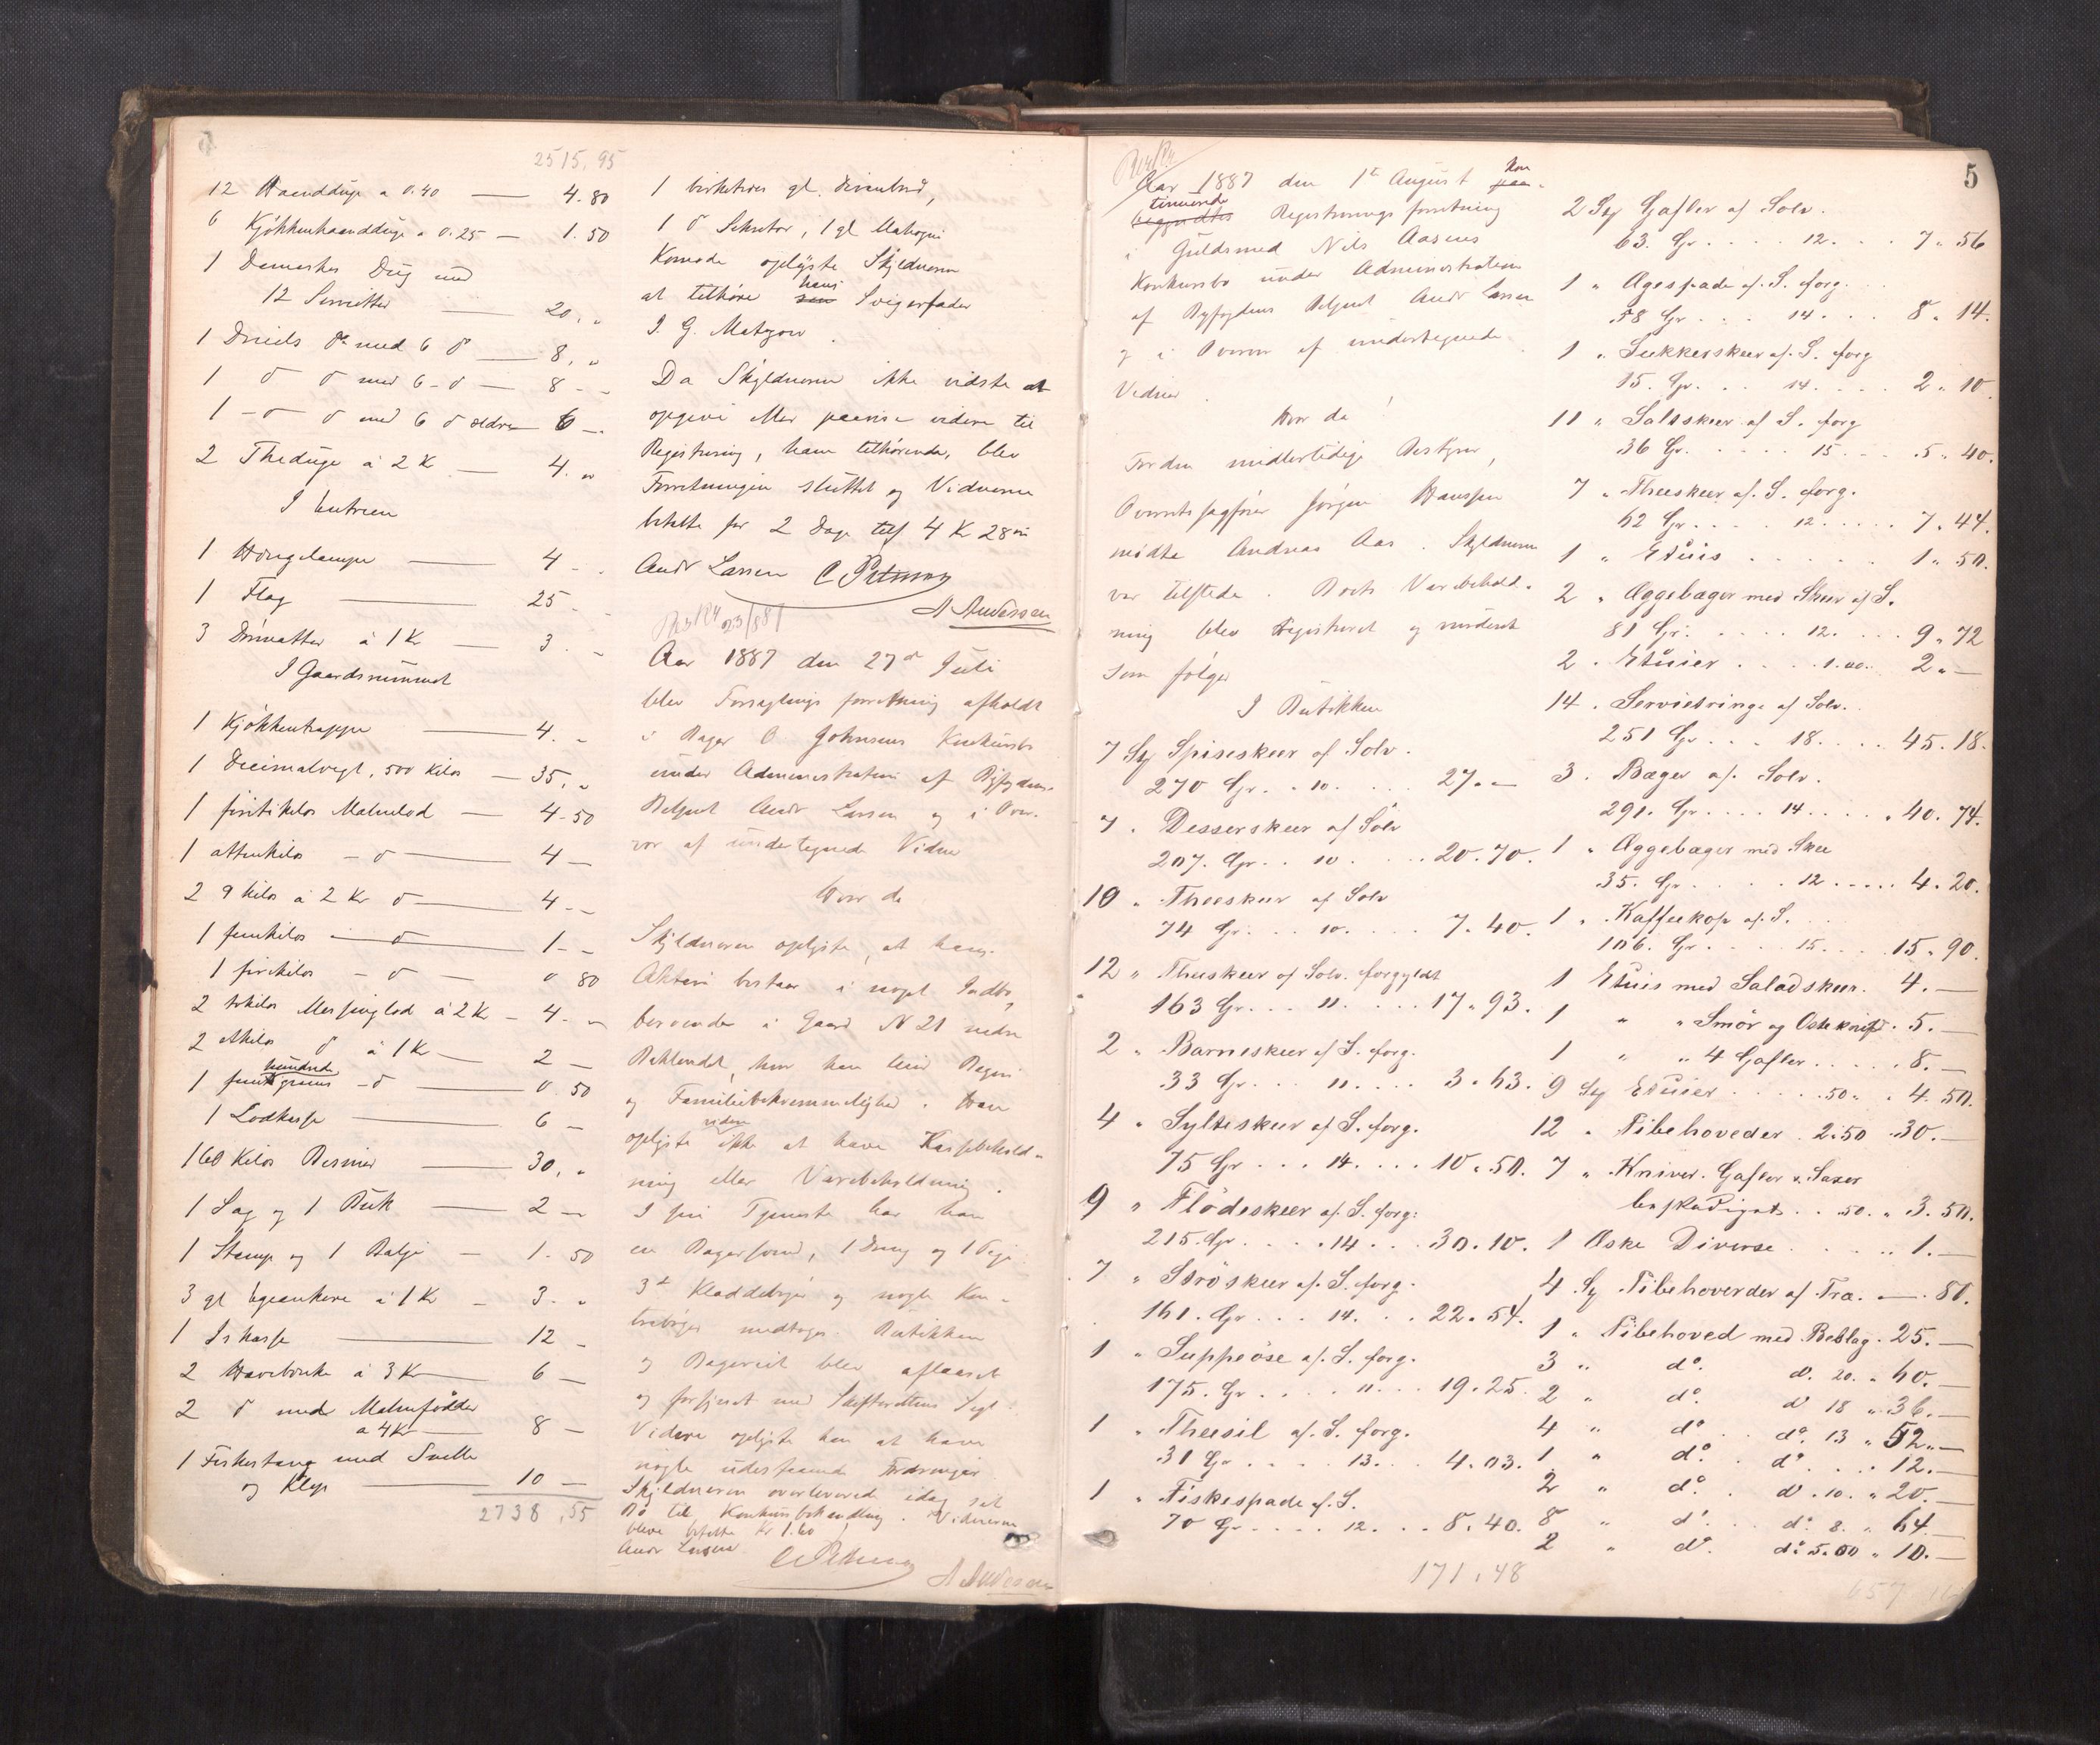 2515,95
12 Haandduge a 0.40 — 4.80
6 Kjökkenhaandduge a 0.25 — 1.50
1 Damaskes Dug med
12 Servietter — 20 „
1 Dreiels do med 6 do — 8 „
1 do do med 6 - do — 8 -
1 - do do med 6 do ældre 6 —
2 Theduge à 2 K — 4 „
I Entreen
1 Hængelampe — 4 -
1 Flag — 25 -
3 Dörmatter à 1 Kr — 3 -
I Gaardsrummet
1 Kjökkentrappe — 4 -
1 Decimalvegt, 500 Kilos — 35 „
1 firtikilos Malmlod — 4-50
1 attenkilos - do — 4 —
2 9 kilos à 2 Kr do — 4 -
1 femkilos - do — 1 -
1 firekilos - do — 0 80
2 tokilos Messinglod à 2 Kr — 4 -
2 etkilos do à 1 Kr — 2 —
hundrede
1 femtigrams - do — 0.50
1 Lodkasse — 6 —
160 Kilos Bismer — 30 „
1 Sag og 1 Buk — 2 —
1 Stamp og 1 Balje — 1. 50
3 gl Egeankere à 1 Kr — 3 „
1 Iskasse — 12 -
2 Havebænke à 3 Kr — 6 —
2 do med Malmfödder
a 4 Kr — 8 —
1 Fiskestang med Snelle
og Klep — 10 —
2738,55
1 birketræs gl. Divanbord,
1 do Sekretær, 1 gl Mahogni
Komode oplyste Skyldneren
hans
at tilhöre sin Svigerfader
J. G. Matzow.
Da Skyldneren ikke vidste at
opgive eller paavise videre til
Registrering, ham tilhörende, blev
Forretningen sluttet og Vidnerne
betalte for 2 Dage tils 4 K 28 öre
Andr Larsen C Petersen
A Andersen
23/8 87
Aar 1887 den 27de Juli
blev Forseglings forretning afholdt
i Bager O Johnsens Konkursbo
under Administration af Byfogdens
Betjent Andr Larsen og i Over-
vær af undertegnede Vidner
Hvor da
Skyldneren oplyste, at hans
Aktiva bestaar i noget Indbo,
beroende i Gaard N 21 nedre
Baklandet, hvor han leier Bageri
og Familiebekvemmelighed. Han
videre
oplyste ikke at have Kassebehold-
ning eller Varebeholdning.
I sin Tjeneste har han
en Bagersvend, 1 Dreng og 1 Pige
3de Kladdeböger og nogle Kon-
traböger medtoges. Butikken
og Bageriet blev aflaaset
og forsynet med Skifterettens Segl.
Videre oplyste han at have
nogle udestaaende Fordringer
Skyldneren overleverede idag sit
Bo til Konkursbehandling. Vidnerne
bleve betalte Kr 1.60
Andr Larsen C Petersen
A Andersen
5
Aar 1887 den 1te August kon
paa-
tinuerede
begyndtes Registrerings forretning
i Guldsmed Nils Aasens
Konkursbo under Administration
af Byfogdens Betjent Andr Larsen
og i Overvær af undertegnede
Vidner.
Hvor da
For den midlertidige Bestyrer,
Overretssagförer Jörgen Hanssen
mödte Andreas Aas. Skyldneren
var tilstede. Boets Varebehold-
ning blev registreret og vurderet
som fölger
I Butikken
7 Stk Spiseskeer af Sölv.
270 Gr. . 10. . . . 27. —
7 . Desserskeer af Sölv
207. Gr. . 10 . . . 20.70.
10 „ Theeskeer af Sölv
74 Gr. . . 10. . . . 7.40.
12 „ Theeskeer af Sölv. forgyldt
163 Gr. . . 11. . . . 17.93.
2 „ Barneskeer af S. forg.
33 Gr. . . 11. . . . 3.63.
4 „ Sylteskeer af S. forg.
75 Gr . . . 14. . . . 10.50.
9 „ Flödeskeer af. S. forg.
215. Gr. . . . 14 . . . 30.10.
7 „ Ströskeer af. S. forg.
161. Gr . . . 14. . . 22.54.
1 „ Suppeöse af. S. forg.
175. Gr . . . . 11. . . 19.25.
1 „ Theesil af. S. forg.
31 Gr. . . . . 13. . . 4.03.
1 „ Fiskespade af. S.
70 Gr. . . . . 12. . . 8.40.
171,48
2 Stk Gafler af Sölv.
63. Gr. . . . . 12. . . 7.56
1 „ Agespade af. S. forg. . .
58 Gr . . . . 14. . . . 8.14.
1 „ Sukkerskeer af. S. forg
15. Gr. . . . 14 . . . . 2.10.
11 „ Saltskeer af S. forg
36 Gr. . . . . . 15. . . . 5.40.
7 „ Theeskeer af. S. forg.
62 Gr. . . . . 12. . . . . 7.44.
1 „ Etuis . . . . . . . 1.50.
2 „ Æggebæger med Skeer af S.
81 Gr. . . . . . 12. . . . 9.72
2 . Etuier . . . . 1.00. . 2. —
14 . Servietringe af Sölv. .
251 Gr. . . . 18. . . . 45.18.
3 . Bæger af. Sölv.
291. Gr. . . . . 14. . . . . 40.74.
1 „ Æggebæger med Skee
35. Gr. . . . . . 12. . . . . 4.20.
1 „ Kaffeekop af. S. . .
106. Gr. . . . . 15. . . . 15.90.
1 Etuis med Saladskeer. 4. —
1 „ „ Smör og Ostekniv. 5. —
1 „ „ 4 Gafler. . . . . 8. —
9 Stk Etuier . . . . . 50. . 4.50.
12 „ Pibehoveder . 2.50 . 30. —
7 „ Kniver. Gafler & Saxer
beskadigede . . 50. „ 3.50.
1 Æske Diverse . . . . . . 1. —
4 Stk Pibehoverder af Træ. — . 80.
1 „ Pibehoved med Beslag. 25. —
3 „ do. do. 20. „ 60. —
2 „ do. do 18 „ 36. —
4 „ do . . do. 13 „ 52. —
1 „ do. . do . . . 12. —
2 „ do. . do . 10. „ 20. —
8 „ do. . . do. 8. „ 64. —
2 „ do. do. 5.00 „ 10. —